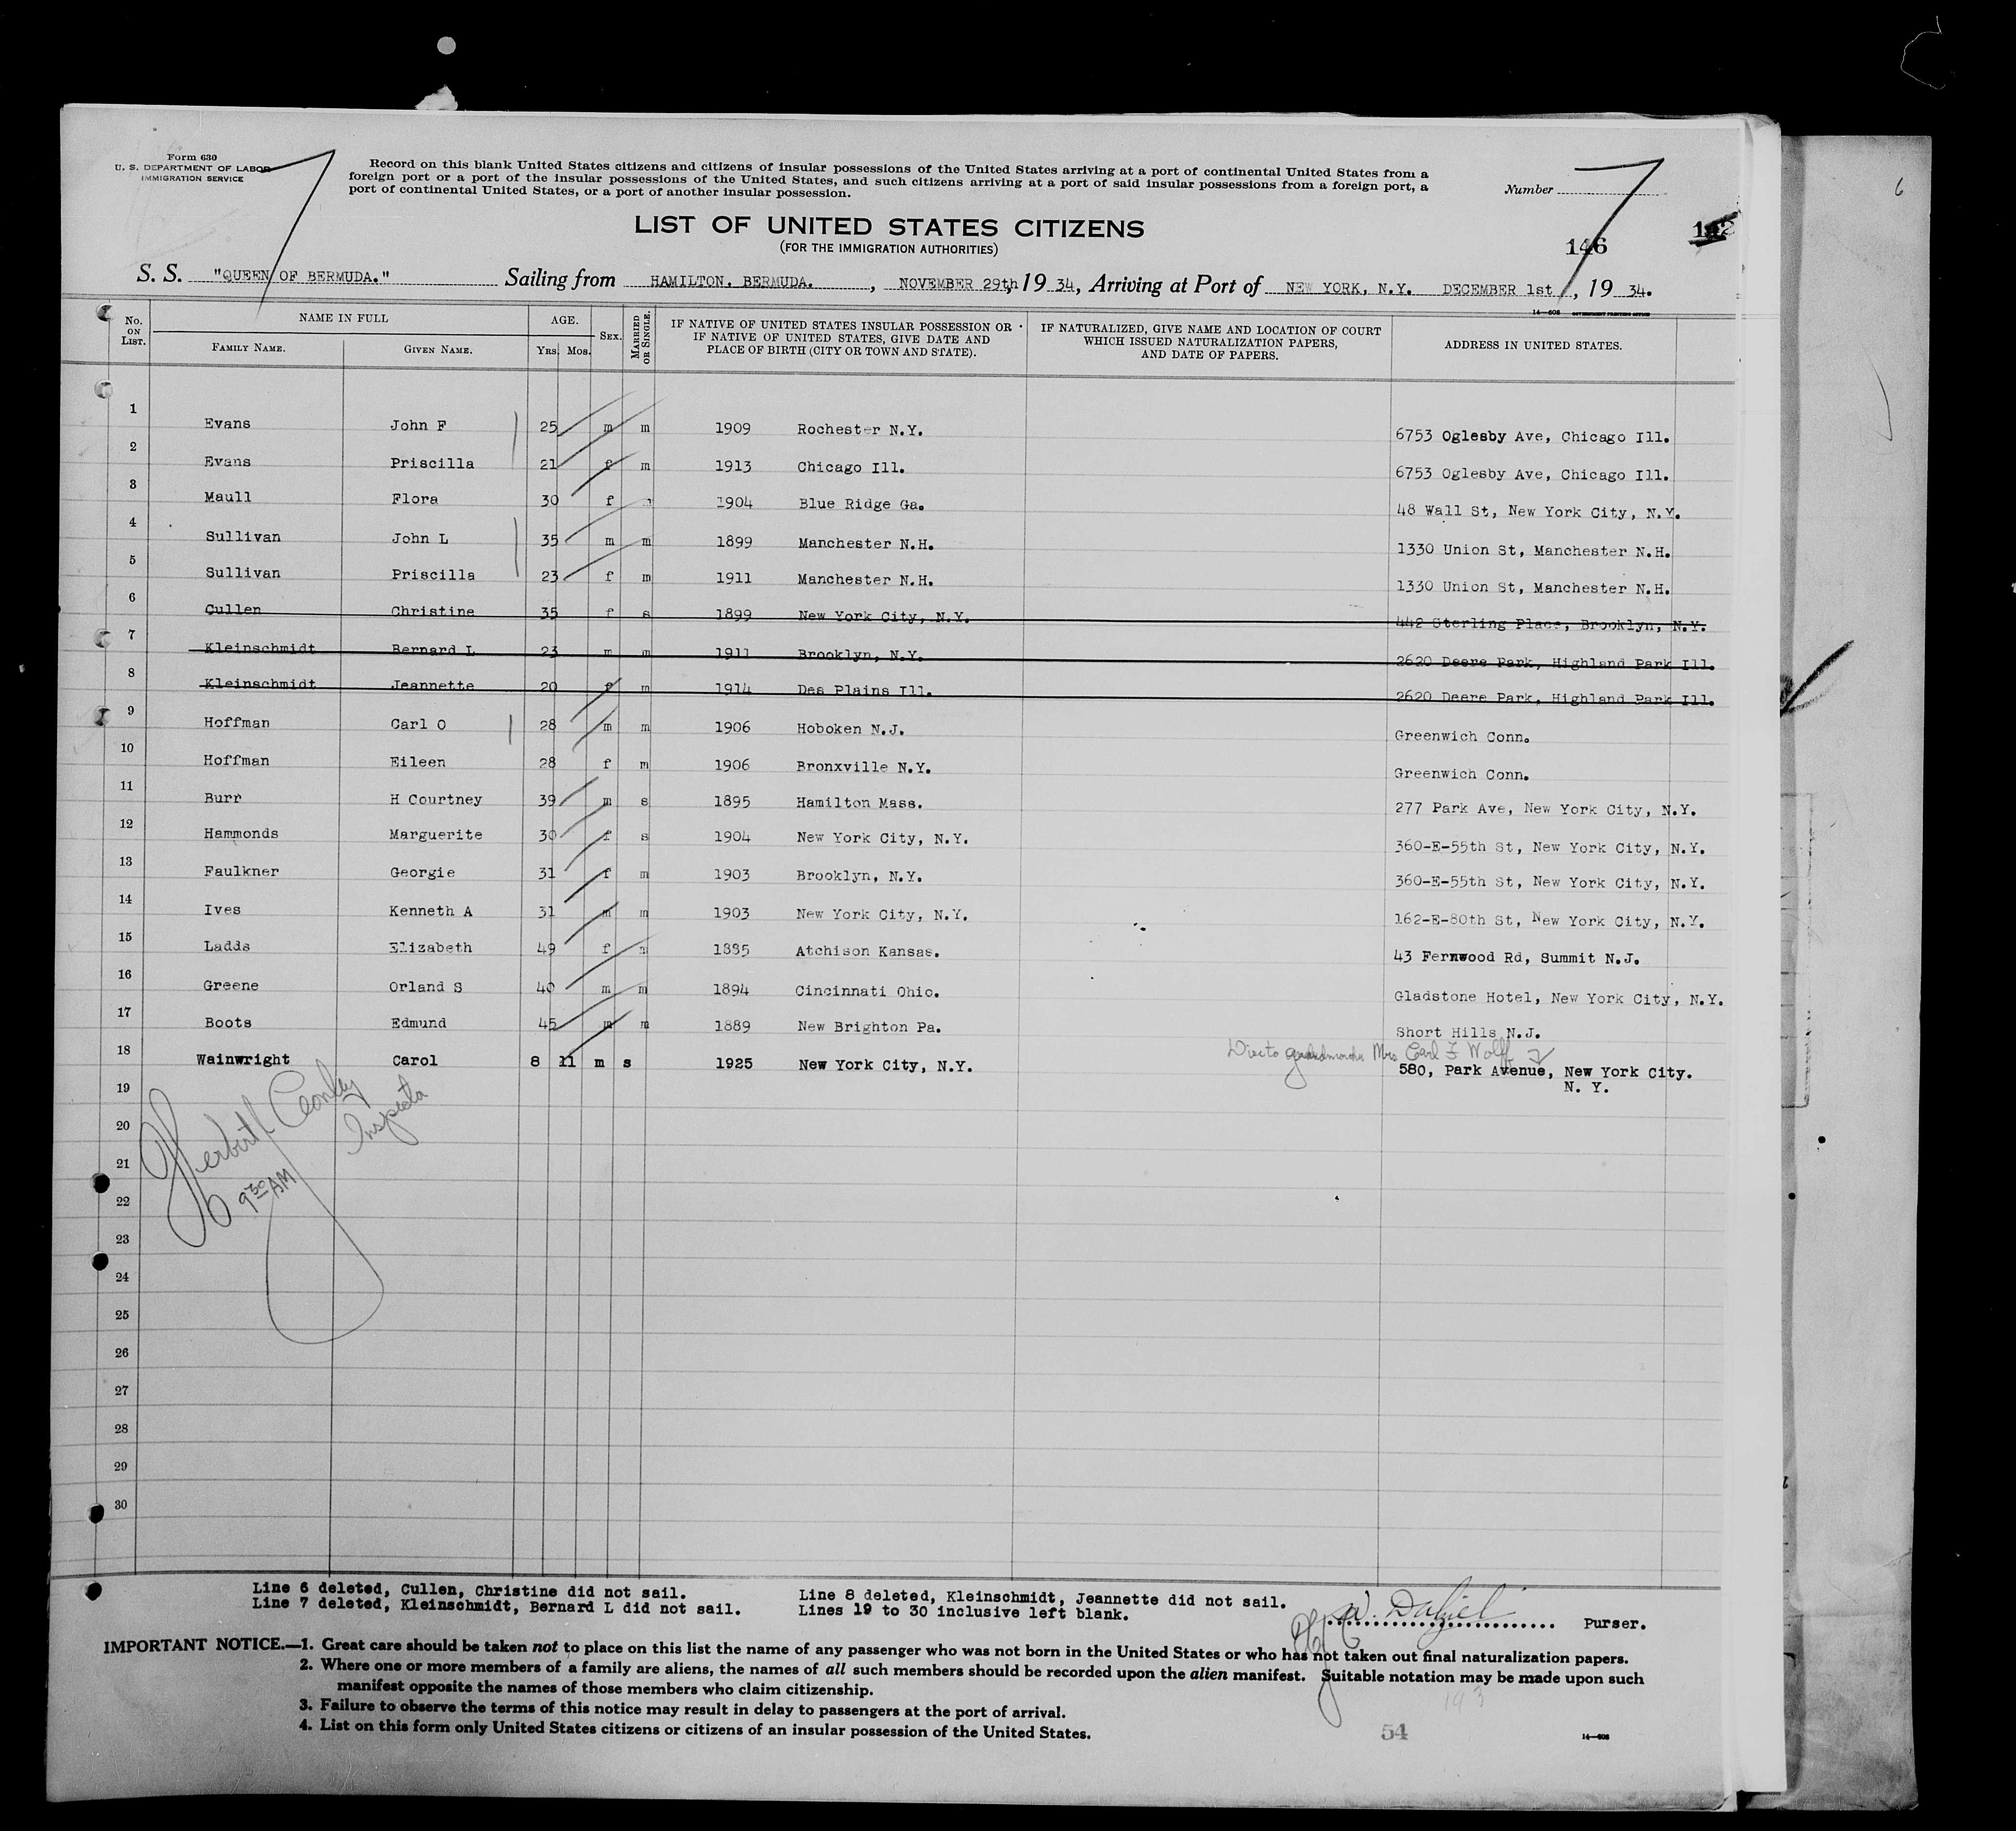 Form 630
U. S. DEPARTMENT OF LABOR
IMMIGRATION SERVICE
Record on this blank United States citizens and citizens of insular possessions of the United States arriving at a port of continental United States from a
foreign port or a port of the insular possessions of the United States, and such citizens arriving at a port of said insular possessions from a foreign port, a
port of continental United States, or a port of another insular possession.
Number
LIST OF UNITED STATES CITIZENS
(FOR THE IMMIGRATION AUTHORITIES)
146
S. S. "QUEEN OF BERMUDA." Sailing from HAMILTON. BERMUDA. , NOVEMBER 29th, 19 34, Arriving at Port of NEW YORK, N.Y. DECEMBER 1st, 19 34.
14—608 GOVERNMENT PRINTING OFFICE
No. ON LIST. NAME IN FULL FAMILY NAME. GIVEN NAME. AGE. YRS. MOS. SEX. MARRIED OR SINGLE. IF NATIVE OF UNITED STATES INSULAR POSSESSION OR IF NATIVE OF UNITED STATES, GIVE DATE AND PLACE OF BIRTH (CITY OR TOWN AND STATE). IF NATURALIZED, GIVE NAME AND LOCATION OF COURT WHICH ISSUED NATURALIZATION PAPERS, AND DATE OF PAPERS. ADDRESS IN UNITED STATES.
1 Evans John F 25 m m 1909 Rochester N.Y. 6753 Oglesby Ave, Chicago Ill.
2 Evans Priscilla 21 f m 1913 Chicago Ill. 6753 Oglesby Ave, Chicago Ill.
3 Maull Flora 30 f 1904 Blue Ridge Ga. 48 Wall St, New York City, N.Y.
4 Sullivan John L 35 m m 1899 Manchester N.H. 1330 Union St, Manchester N.H.
5 Sullivan Priscilla 23 f m 1911 Manchester N.H. 1330 Union St, Manchester N.H.
6 Cullen Christine 35 f s 1899 New York City, N.Y. 442 Sterling Place, Brooklyn, N.Y.
7 Kleinschmidt Bernard L 23 m m 1911 Brooklyn, N.Y. 2620 Deere Park, Highland Park Ill.
8 Kleinschmidt Jeannette 20 f m 1914 Des Plains Ill. 2620 Deere Park, Highland Park Ill.
9 Hoffman Carl O 28 m m 1906 Hoboken N.J. Greenwich Conn.
10 Hoffman Eileen 28 f m 1906 Bronxville N.Y. Greenwich Conn.
11 Burr H Courtney 39 m s 1895 Hamilton Mass. 277 Park Ave, New York City, N.Y.
12 Hammonds Marguerite 30 f s 1904 New York City, N.Y. 360-E-55th St, New York City, N.Y.
13 Faulkner Georgie 31 f m 1903 Brooklyn, N.Y. 360-E-55th St, New York City, N.Y.
14 Ives Kenneth A 31 m m 1903 New York City, N.Y. 162-E-80th St, New York City, N.Y.
15 Ladds Elizabeth 49 f 1885 Atchison Kansas. 43 Fernwood Rd, Summit N.J.
16 Greene Orland S 40 m m 1894 Cincinnati Ohio. Gladstone Hotel, New York City, N.Y.
17 Boots Edmund 45 m m 1889 New Brighton Pa. Short Hills N.J.
grandmother Mrs Carl F Wolff
18 Wainwright Carol 8 11 m s 1925 New York City, N.Y. 580, Park Avenue, New York City.
N. Y.
19
20
21
22
23
24
25
26
27
28
29
30
Herbert
Inspector
9 30 AM
Line 6 deleted, Cullen, Christine did not sail.
Line 7 deleted, Kleinschmidt, Bernard L did not sail.
Line 8 deleted, Kleinschmidt, Jeannette did not sail.
Lines 19 to 30 inclusive left blank.
Purser.
IMPORTANT NOTICE.—1. Great care should be taken not to place on this list the name of any passenger who was not born in the United States or who has not taken out final naturalization papers.
2. Where one or more members of a family are aliens, the names of all such members should be recorded upon the alien manifest. Suitable notation may be made upon such
manifest opposite the names of those members who claim citizenship.
3. Failure to observe the terms of this notice may result in delay to passengers at the port of arrival.
4. List on this form only United States citizens or citizens of an insular possession of the United States.
54
14—608
6